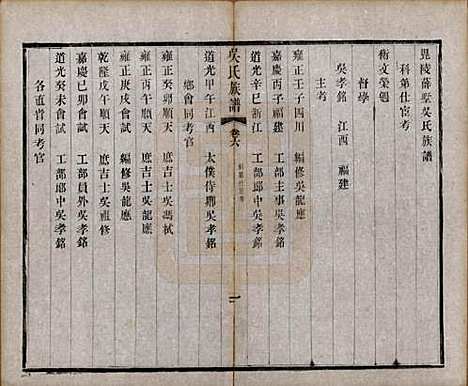 毘陵薛墅吳氏族譜
科第仕宦考
衡文榮遇
督學
吳孝銘 江西 福建
主考
雍正壬子四川 編修吳龍應
嘉慶丙子福建 工部主事吳孝銘
道光辛巳浙江 工部郎中吳孝銘
吳氏族譜 卷六 科第仕宦考 一
道光甲午江西 太僕侍郎吳孝銘
鄉會同考官
雍正癸卯順天 庶吉士吳馮栻
雍正丙午順天 庶吉士吳龍應
雍正庚戌會試 編修吳龍應
乾隆戊午順天 庶吉士吳祖修
嘉慶己卯會試 工部員外吳孝銘
道光癸未會試 工部郎中吳孝銘
各直省同考官